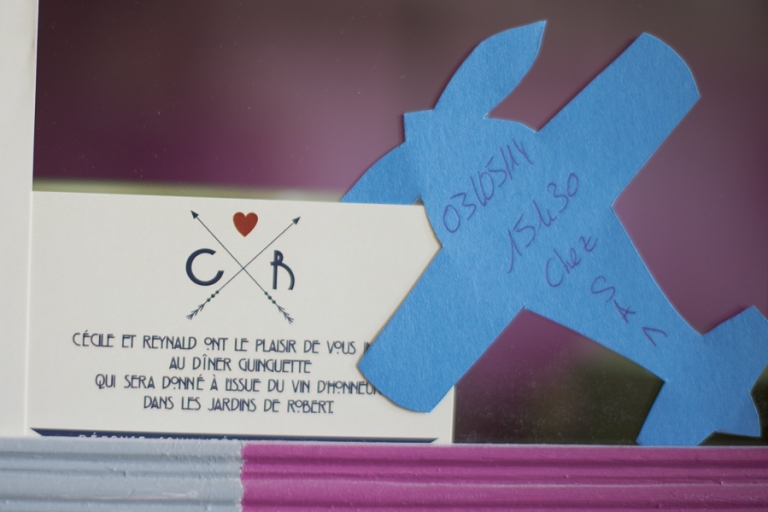 C R
CÉCILE ET REYNALD ONT LE PLAISIR DE VOUS
AU DÎNER GUINGUETTE
QUI SERA DONNÉ À L'ISSUE DU VIN D'HONNEUR
DANS LES JARDINS DE ROBERT
03/05/14
15h30
Chez